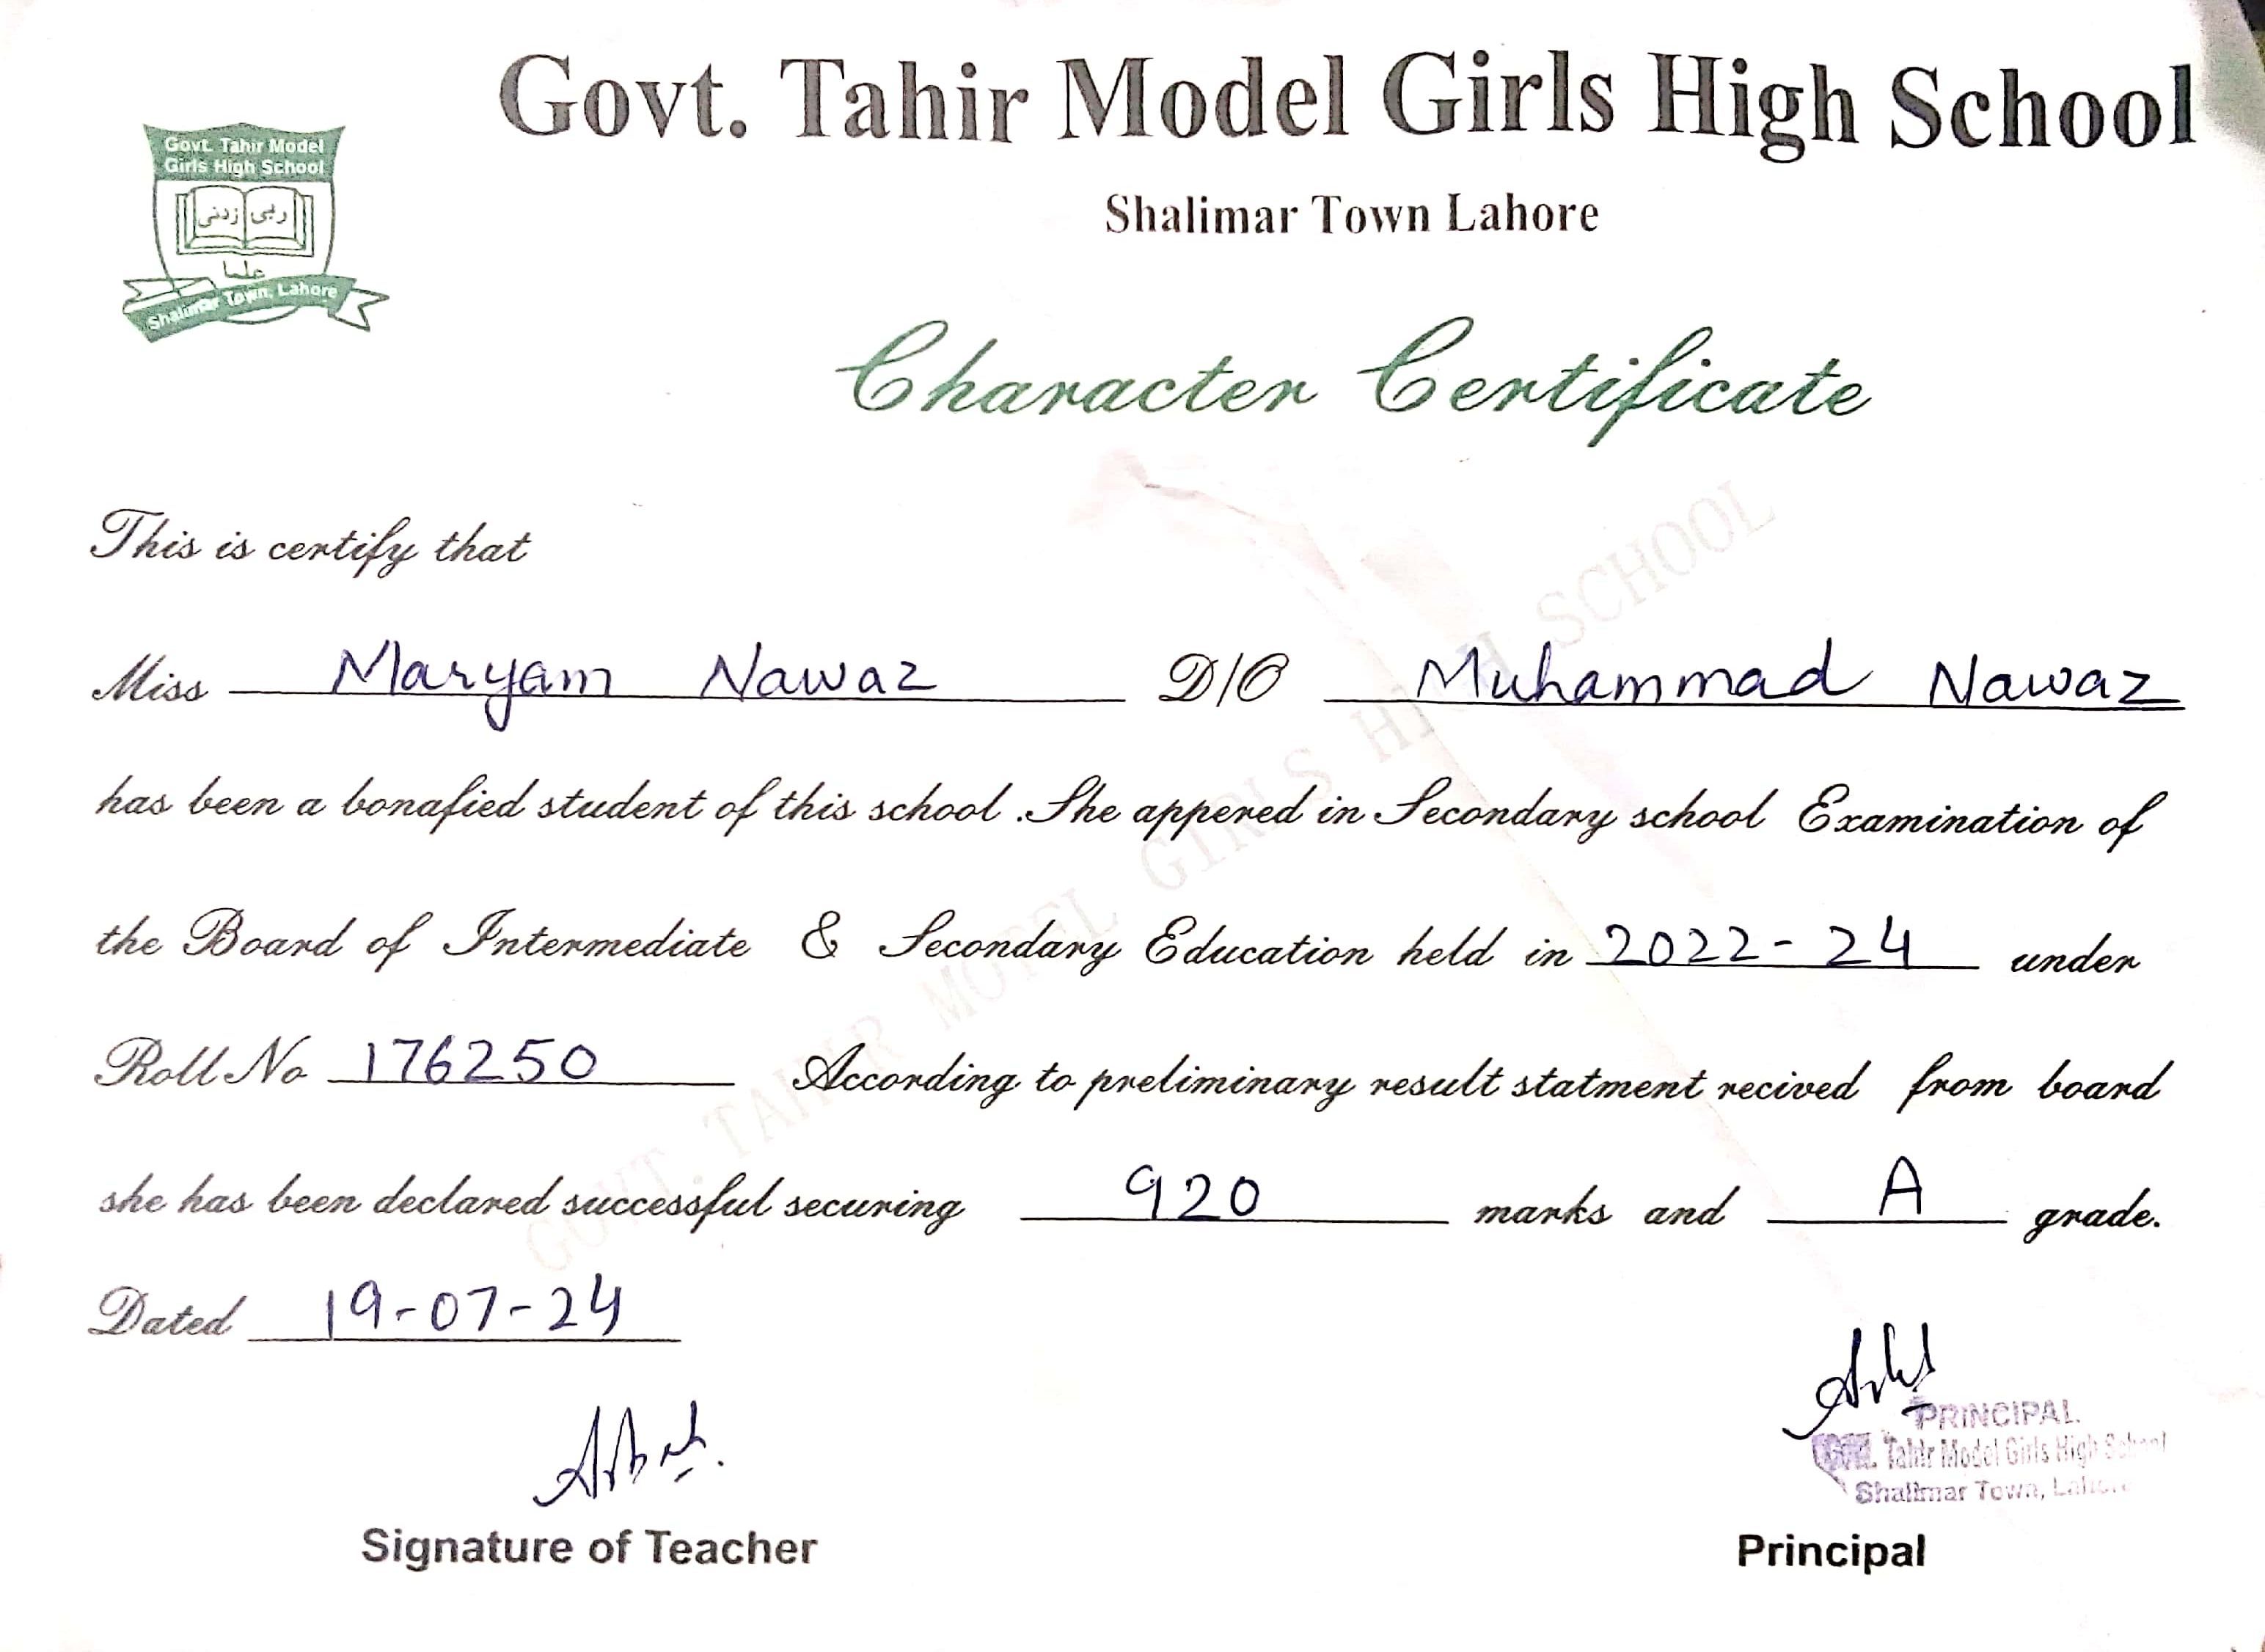 Govt. Tahir Model Girls High School
Shalimar Town Lahore
Govt. Tahir Model
Girls High School
ربی زدنی
علما
Shalimar Town, Lahore
Character Certificate
This is certify that
Miss Maryam Nawaz D/O Muhammad Nawaz
has been a bonafied student of this school .She appered in Secondary school Examination of
the Board of Intermediate & Secondary Education held in 2022-24 under
Roll No 176250 According to preliminary result statment recived from board
she has been declared successful securing 920 marks and A grade.
Dated 19-07-24
GOVT. TAHIR MODEL GIRLS HIGH SCHOOL
PRINCIPAL
Govt. Tahir Model Girls High School
Shalimar Town, Lahore
Signature of Teacher
Principal